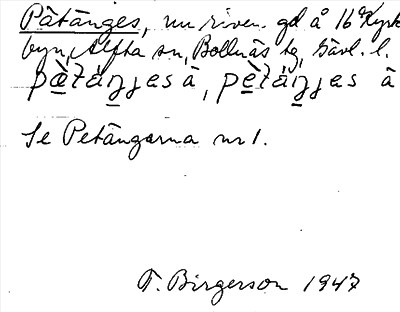 Pätänges, nu riven gd å 16 Kyrk
byn, Alfta sn, Bollnäs tg, Gävl. l.
pæ̀táŋjes å, pètáŋjes å
Se Petängarna nr 1.
F. Birgerson 1947